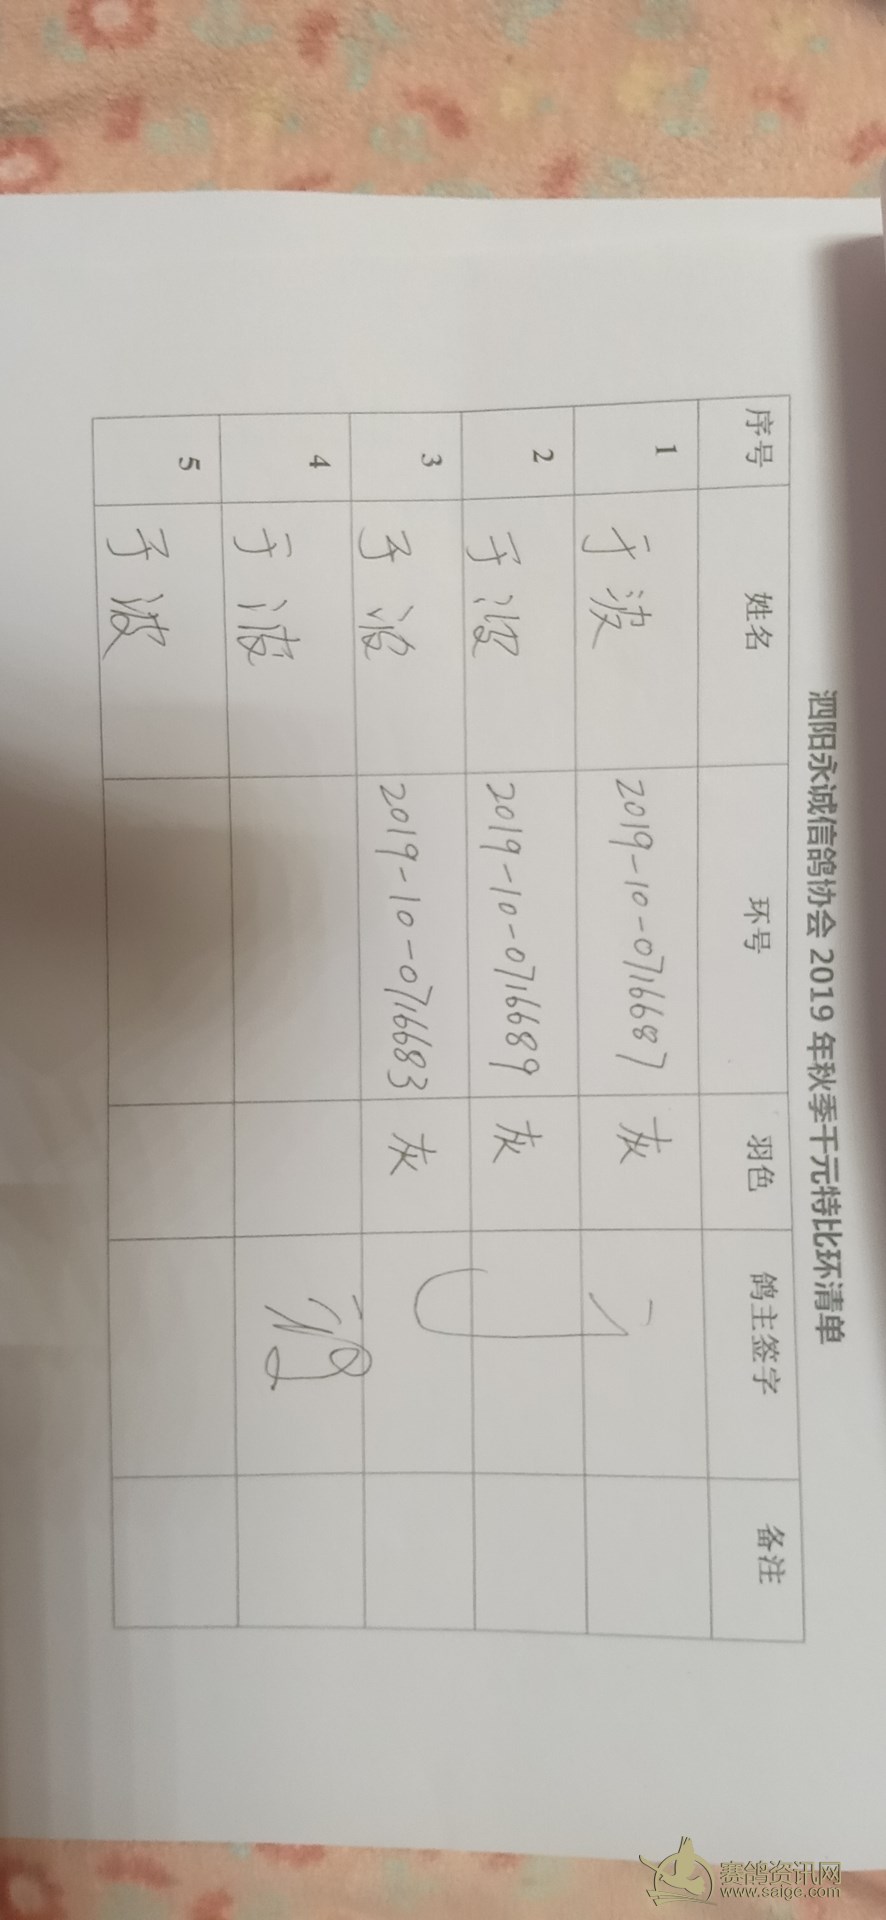 泗阳永诚信鸽协会 2019 年秋季千元特比环清单
序号 姓名 环号 羽色 鸽主签字 备注
1 于波 2019-10-0716687 灰
2 于波 2019-10-0716689 灰
3 于波 2019-10-0716683 灰
4 于波
5 于波
赛鸽资讯网
www.saigc.com